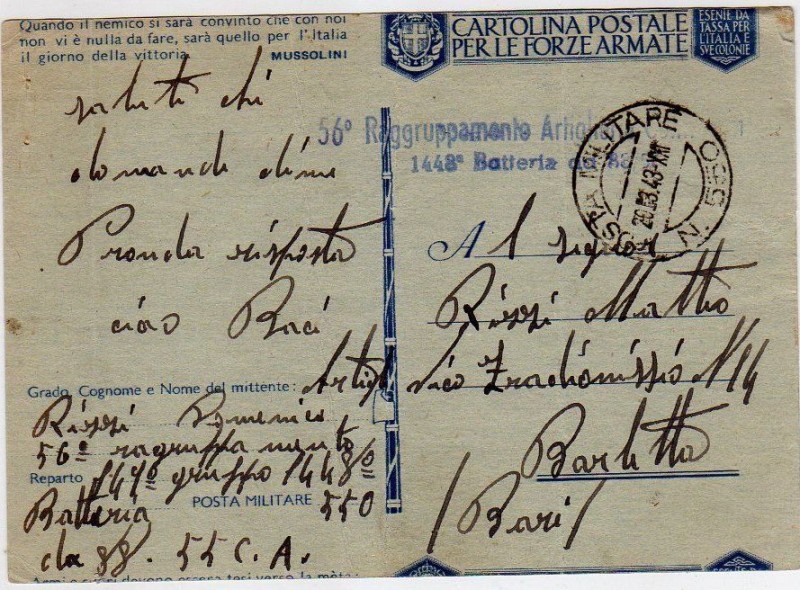 Quando il nemico si sarà convinto che con noi
non vi è nulla da fare, sarà quello per l'Italia
il giorno della vittoria MUSSOLINI
CARTOLINA POSTALE
PER LE FORZE ARMATE
ESENTE DA
TASSA PER
L'ITALIA E
SUE COLONIE
saluti chi
domandi di me
Pronda risposta
ciao Baci
56º Raggruppamento
1448ª Batteria da 88
POSTA MILITARE N. 550
20.3.43 XXI
Al signor
Rizzi Matteo
vico N 14
Barletta
/Bari/
Grado, Cognome e Nome del mittente: Artigl
Rizzi Domenico
56º ragruppamento
Reparto 147º gruppo 1448º
Batteria POSTA MILITARE 550
da 88. 55 C.A.